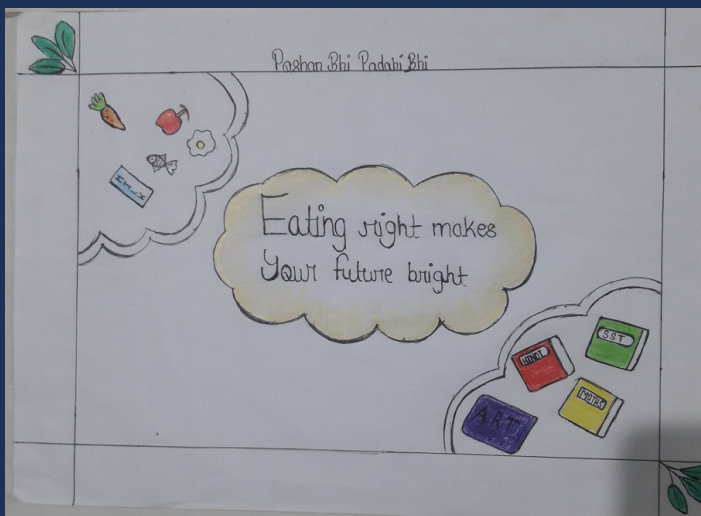 Poshan Bhi Padahi Bhi
MILK
Eating right makes
Your future bright
SST
HINDI
MATHS
ART